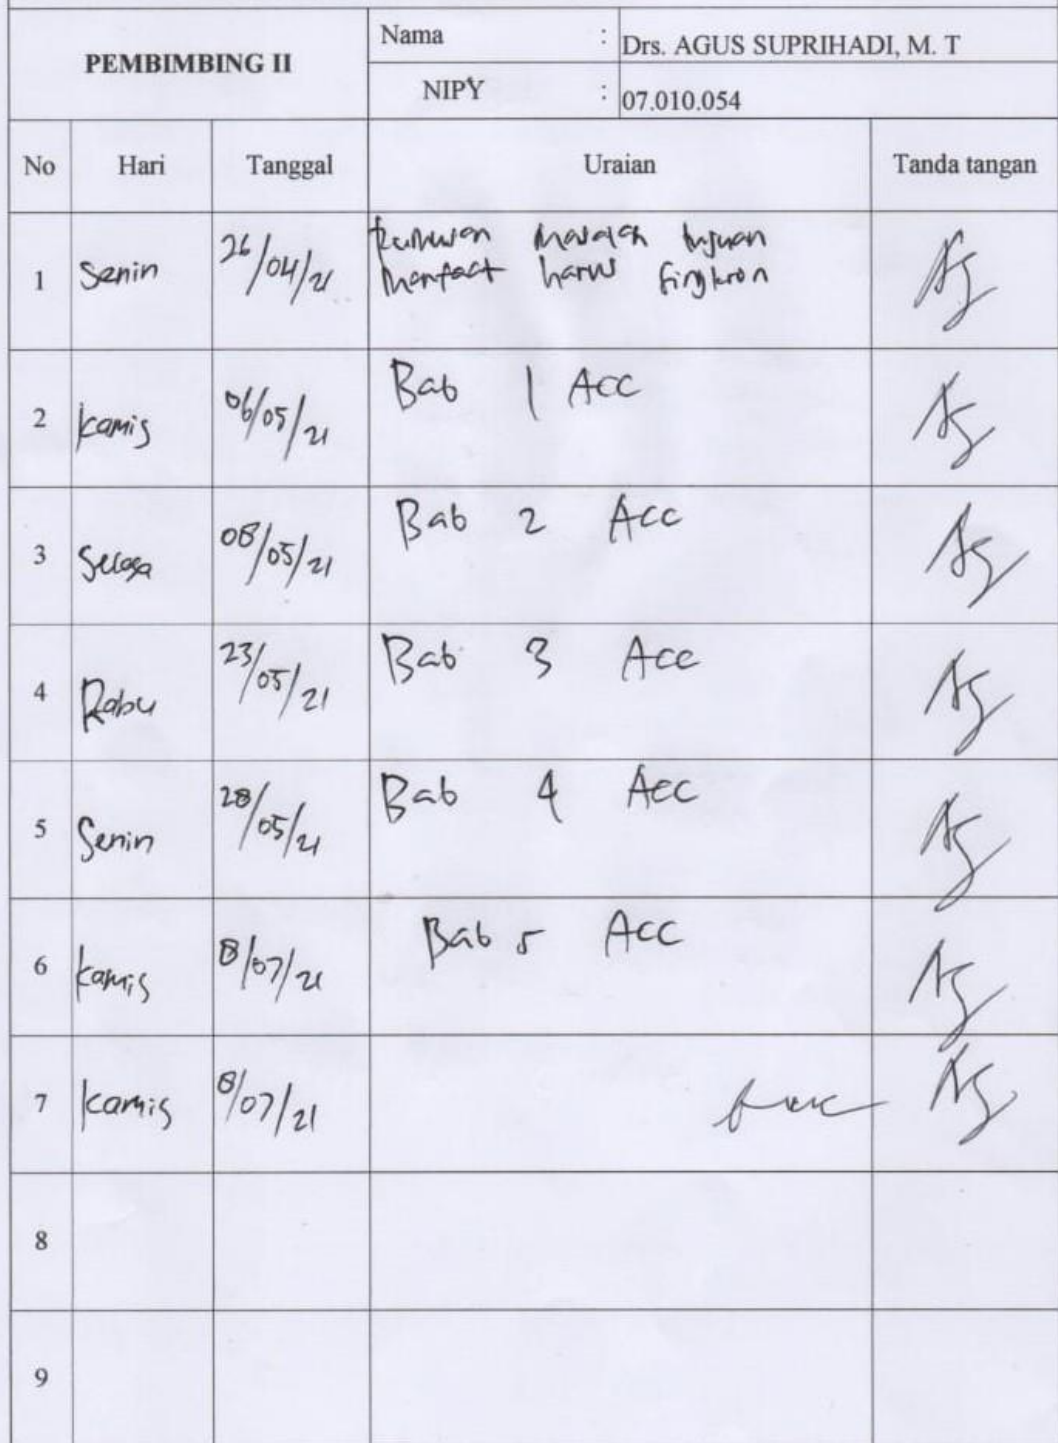 PEMBIMBING II
Nama : Drs. AGUS SUPRIHADI, M. T
NIPY : 07.010.054
No Hari Tanggal Uraian Tanda tangan
1 Senin 26/04/21 Rumusan masalah tujuan
manfaat harus singkron
2 Kamis 06/05/21 Bab 1 Acc
3 Selasa 08/05/21 Bab 2 Acc
4 Rabu 23/05/21 Bab 3 Acc
5 Senin 28/05/21 Bab 4 Acc
6 Kamis 8/07/21 Bab 5 Acc
7 Kamis 8/07/21
8
9